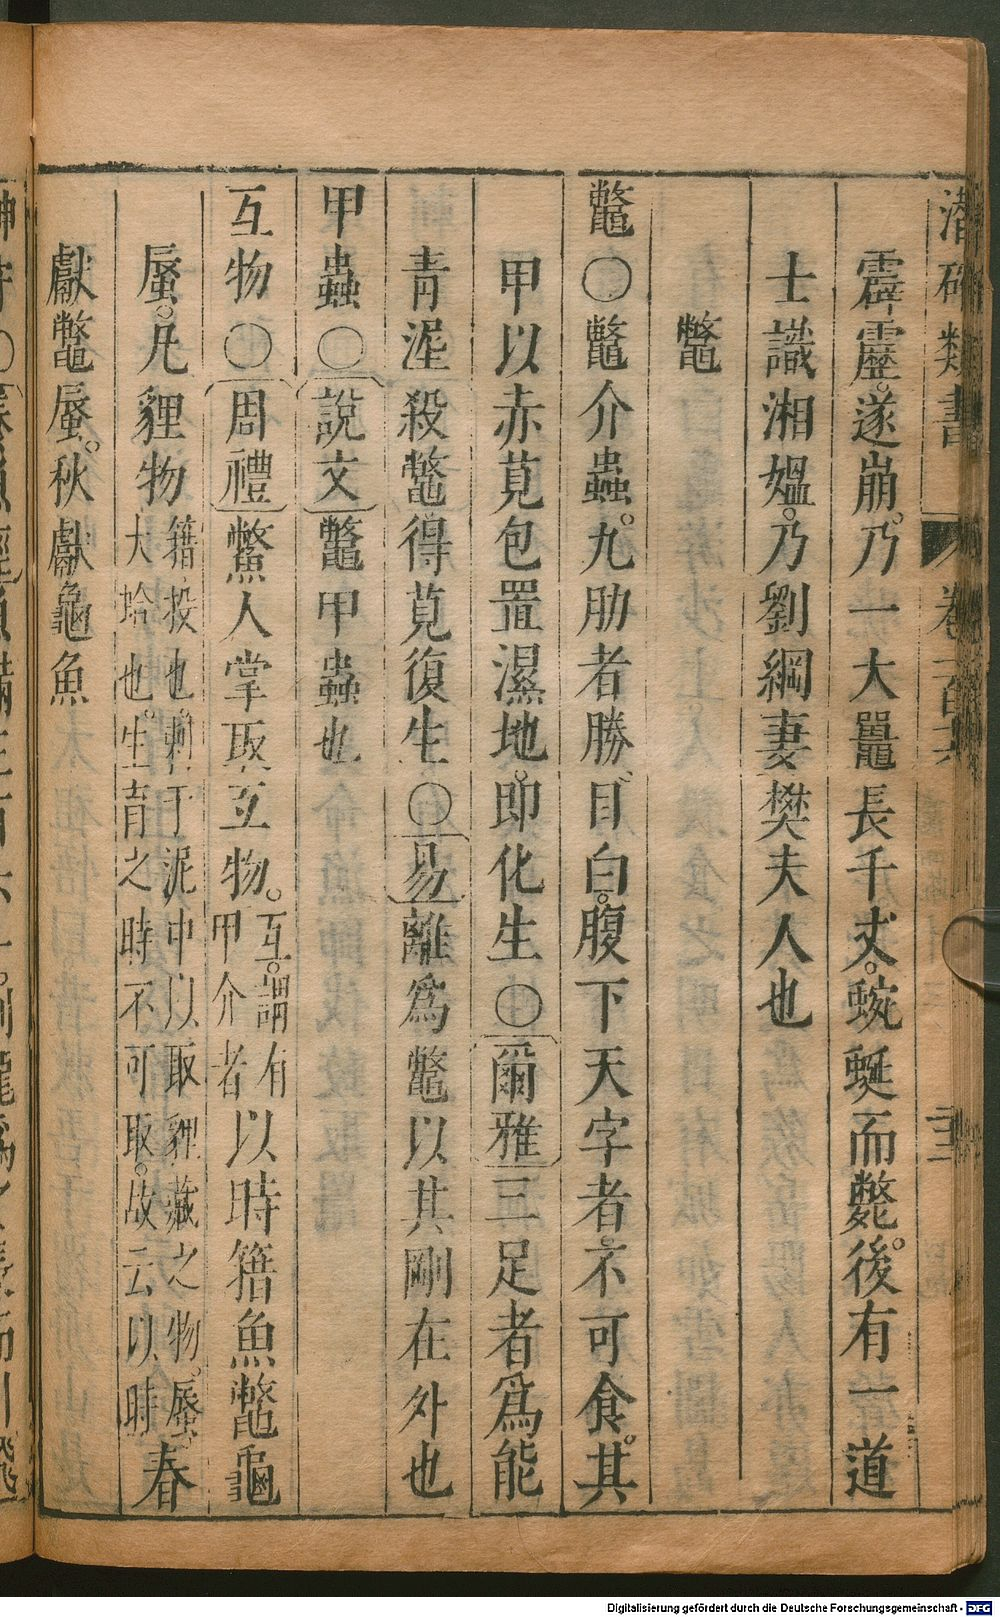 潛確類書 卷一百
霹靂。遂崩。乃一大鼉長千丈。蜿蜒而斃。後有一道
士識湘媼。乃劉綱妻樊夫人也
鼈
鼈〇鼈介蟲。九肋者勝。目白。腹下天字者。不可食。其
甲以赤莧包置濕地。即化生〇爾雅三足者爲能
青泥殺鼈得莧復生〇易離爲鼈以其剛在外也
甲蟲〇說文鼈甲蟲也
互物〇周禮鱉人掌取互物。互。謂有甲介者以時籍魚鼈龜
蜃。凡貍物籍。投也。刺于泥中以取貍藏之物。蜃。大蛤也。生育之時不可取。故云以時春
獻鼈蜃。秋獻龜魚
Digitalisierung gefördert durch die Deutsche Forschungsgemeinschaft - DFG